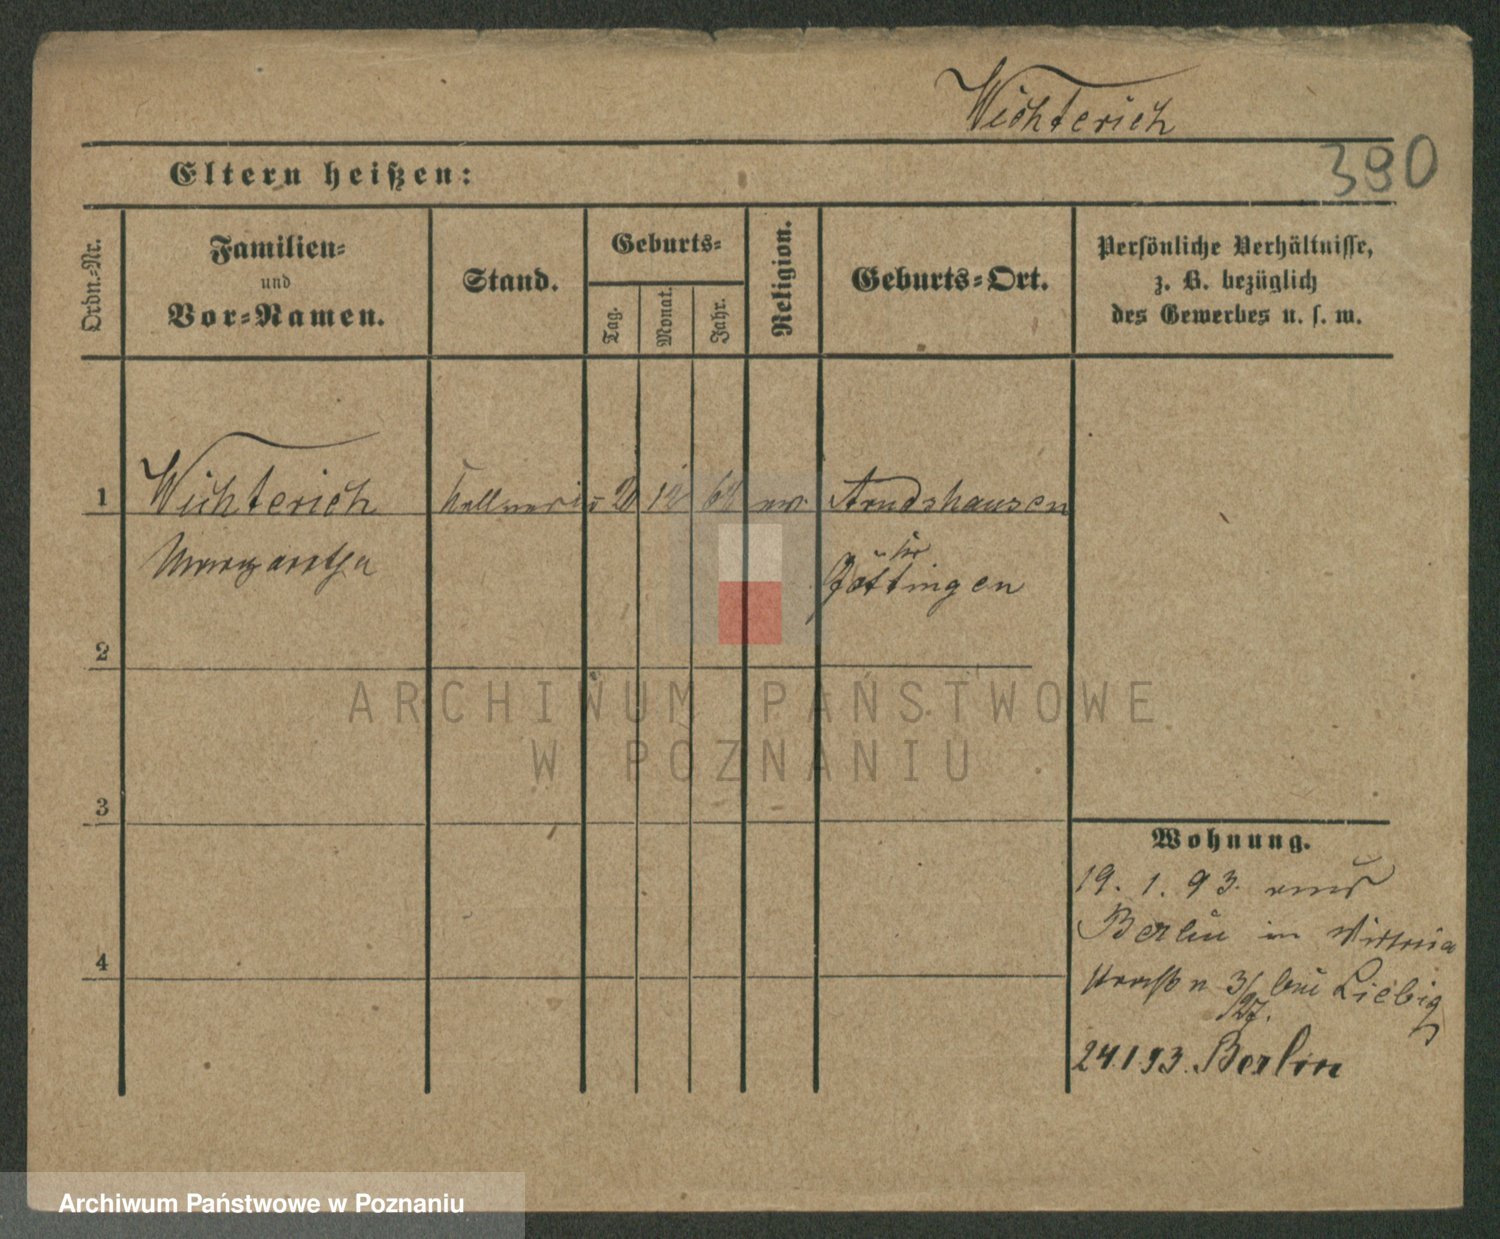 Wichterich
390
Eltern heißen:
Ordn.-Nr.
Familien-
und
Vor-Namen.
Stand.
Geburts-
Tag.
Monat.
Jahr.
Religion.
Geburts-Ort.
Persönliche Verhältnisse,
z. B. bezüglich
des Gewerbes u. s. w.
1 Wichterich Kellnerin 2 12 ev. Arndshausen
Margaretha
Göttingen
2
ARCHIWUM PAŃSTWOWE
W POZNANIU
3
4
Wohnung.
19. 1. 93. aus
Berlin in Viktoria
straße 3/ bei Liebig
27.
24.1.93. Berlin
Archiwum Państwowe w Poznaniu